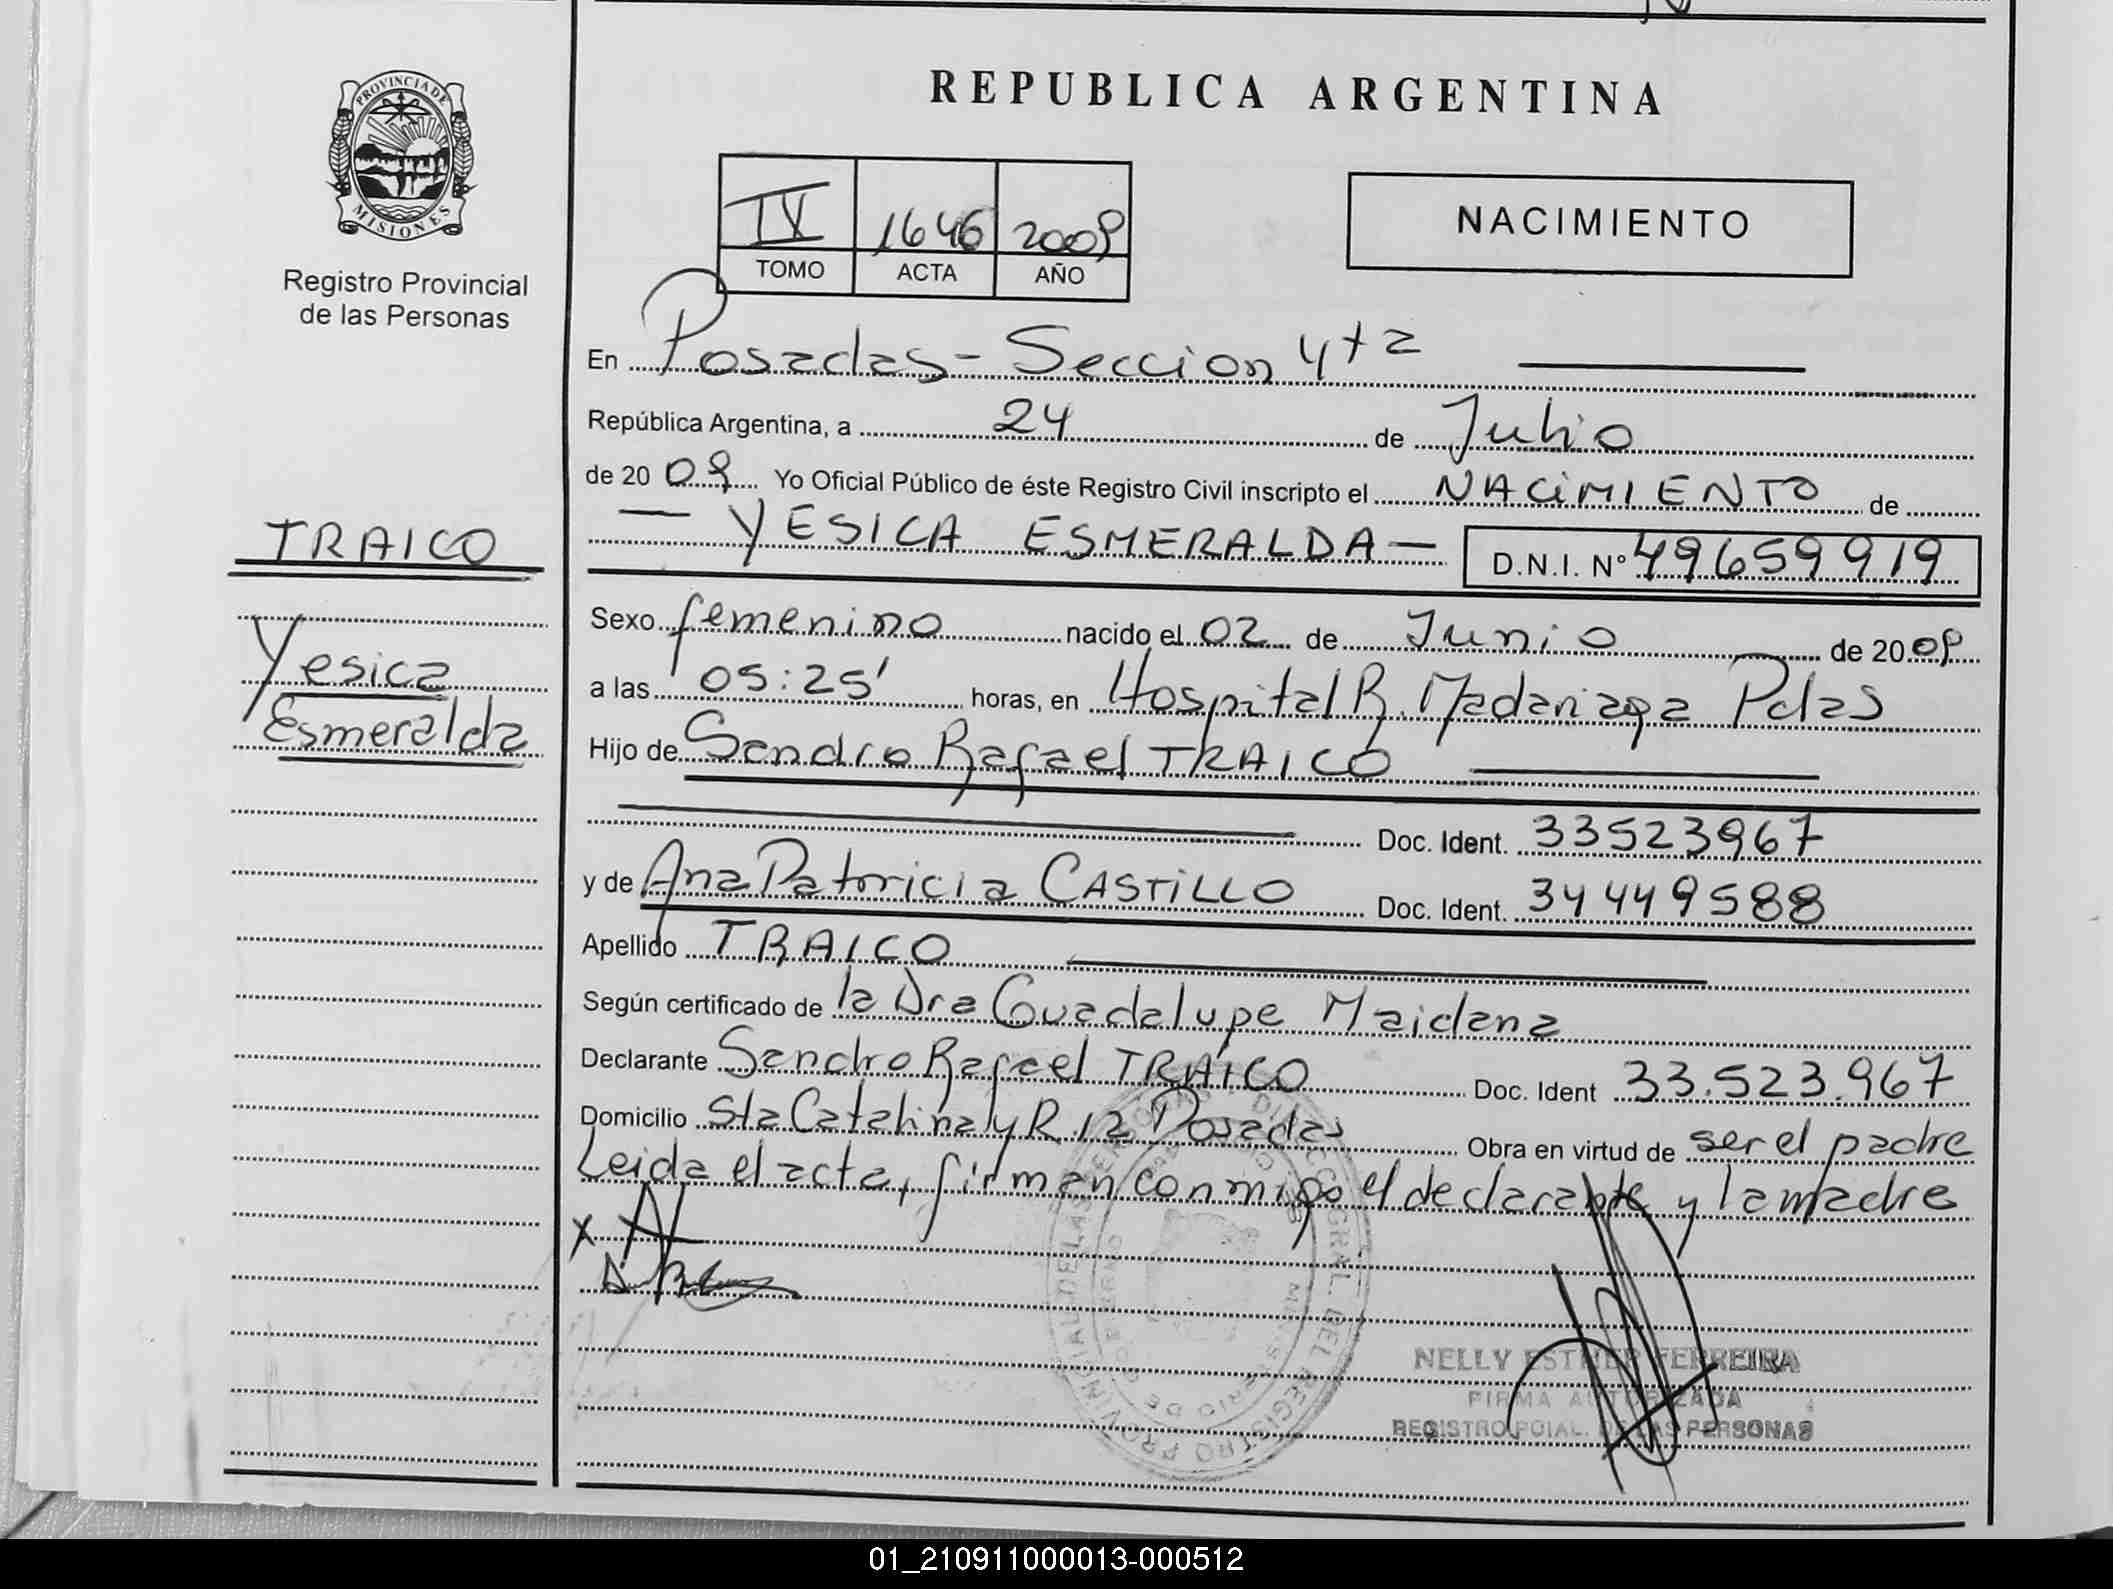 REPUBLICA ARGENTINA
PROVINCIA DE MISIONES
Registro Provincial
de las Personas
IV 1646 2009
TOMO ACTA AÑO
NACIMIENTO
En Posadas - Seccion 4ta
República Argentina, a 24 de Julio
de 2009 Yo Oficial Público de éste Registro Civil inscripto el NACIMIENTO de
YESICA ESMERALDA D.N.I. Nº 49659919
TRAICO
Yesica
Esmeralda
Sexo femenino nacido el 02 de Junio de 2009
a las 05:25' horas, en Hospital R. Madariaga Pdas
Hijo de Sandro Rafael TRAICO
Doc. Ident. 33523967
y de Ana Patoricia CASTILLO Doc. Ident. 34449588
Apellido TRAICO
Según certificado de la Dra Guadalupe Maidana
Declarante Sandro Rafael TRAICO Doc. Ident 33.523.967
Domicilio Sta Catalina y R 12 Posadas Obra en virtud de ser el padre
Leida el acta, firman conmigo el declarante y la madre
X
NELLY ESTHER FERREIRA
FIRMA AUTORIZADA
REGISTRO PCIAL. DE LAS PERSONAS
01_210911000013-000512